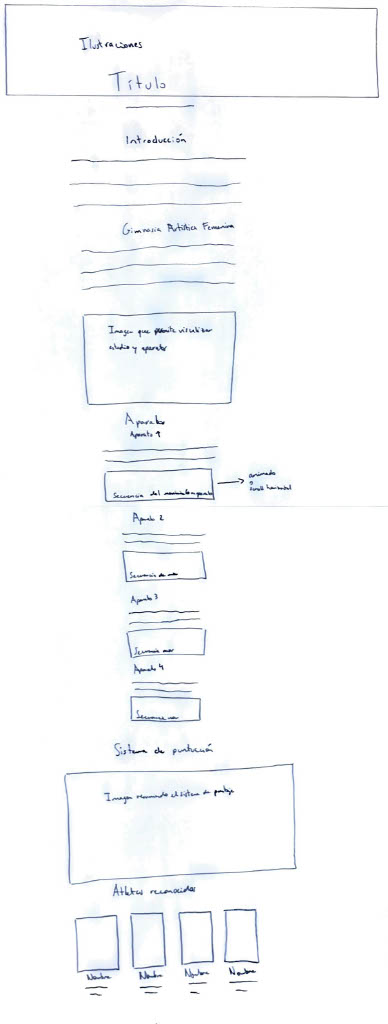 Ilustraciones
Título
Introducción
Gimnasia Artística Femenina
Imagen que permite visualizar
estadio y aparatos
Aparatos
Aparato 1
Secuencia del movimiento
animado
o
scroll horizontal
Aparato 2
Secuencia
Aparato 3
Secuencia
Aparato 4
Secuencia
Sistema de puntuación
Imagen el sistema de puntaje
Atletas reconocidas
Nombre Nombre Nombre Nombre